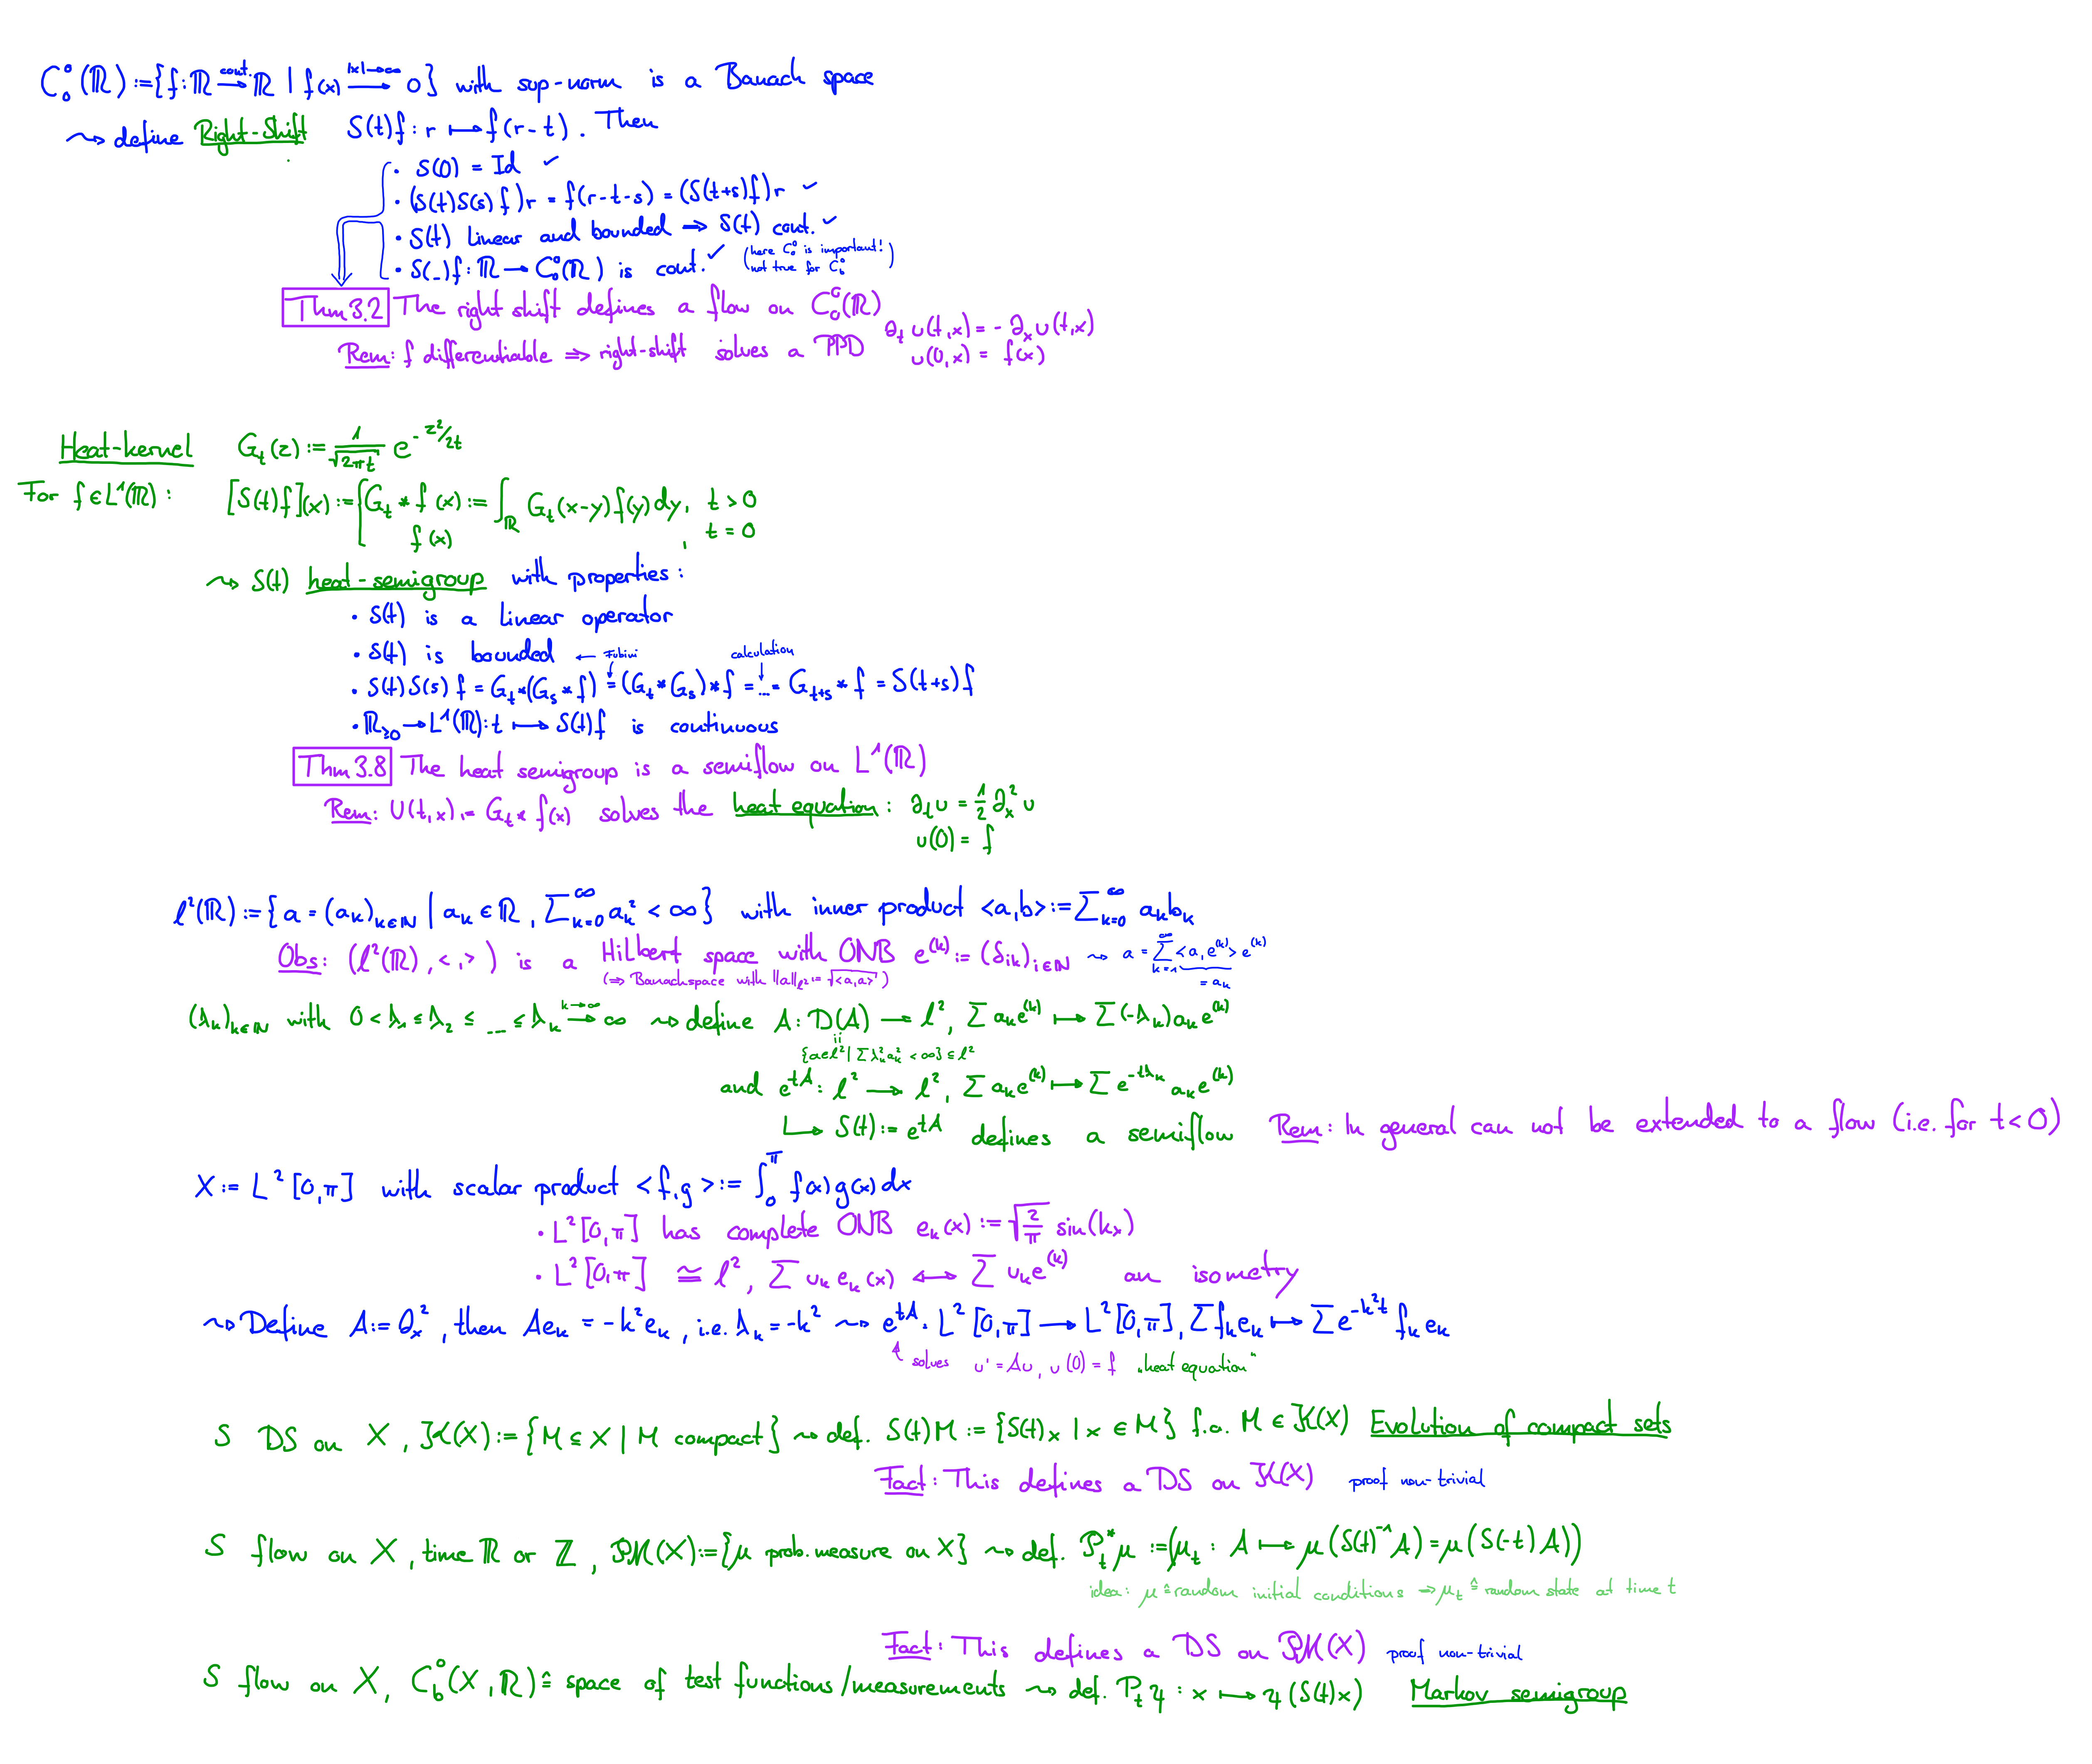 C₀⁰(ℝ) := {f: ℝ →^{cont.} ℝ | f(x) →^{|x|→∞} 0} with sup-norm is a Banach space
⇝ define Right-Shift S(t)f: r ↦ f(r-t). Then
• S(0) = Id ✓
• (S(t)S(s)f)r = f(r-t-s) = (S(t+s)f)r ✓
• S(t) linear and bounded ⇒ S(t) cont. ✓
• S(_)f: ℝ → C₀⁰(ℝ) is cont. ✓ (here C₀⁰ is important! not true for C_b⁰)
Thm 3.2 The right shift defines a flow on C₀⁰(ℝ)
Rem: f differentiable ⇒ right-shift solves a PPD ∂_t u(t,x) = -∂_x u(t,x)
u(0,x) = f(x)
Heat-kernel G_t(z) := 1/√(2πt) e^{-z²/2t}
For f ∈ L¹(ℝ): [S(t)f](x) := { G_t * f(x) := ∫_ℝ G_t(x-y)f(y)dy, t > 0
f(x), t = 0
⇝ S(t) heat-semigroup with properties:
• S(t) is a linear operator
• S(t) is bounded ← Fubini ↓ calculation ↓
• S(t)S(s)f = G_t*(G_s*f) = (G_t*G_s)*f = ... = G_{t+s}*f = S(t+s)f
• ℝ_{≥0} → L¹(ℝ): t ↦ S(t)f is continuous
Thm 3.8 The heat semigroup is a semiflow on L¹(ℝ)
Rem: U(t,x) := G_t * f(x) solves the heat equation: ∂_t u = ½ ∂_x² u
u(0) = f
ℓ²(ℝ) := {a = (a_k)_{k∈ℕ} | a_k ∈ ℝ, ∑_{k=0}^∞ a_k² < ∞} with inner product <a,b> := ∑_{k=0}^∞ a_k b_k
Obs: (ℓ²(ℝ), <,>) is a Hilbert space with ONB e^{(k)} := (δ_{ik})_{i∈ℕ} ⇝ a = ∑_{k=1}^∞ <a,e^{(k)}> e^{(k)}
(⇒ Banachspace with ||a||_{ℓ²} := √<a,a>) = a_k
(λ_k)_{k∈ℕ} with 0 < λ₁ ≤ λ₂ ≤ ... ≤ λ_k →^{k→∞} ∞ ⇝ define A: D(A) → ℓ², ∑ a_k e^{(k)} ↦ ∑ (-λ_k) a_k e^{(k)}
{a∈ℓ² | ∑ λ_k² a_k² < ∞} ⊆ ℓ²
and e^{tA}: ℓ² → ℓ², ∑ a_k e^{(k)} ↦ ∑ e^{-tλ_k} a_k e^{(k)}
↳ S(t) := e^{tA} defines a semiflow Rem: In general can not be extended to a flow (i.e. for t<0)
X := L²[0,π] with scalar product <f,g> := ∫_0^π f(x)g(x)dx
• L²[0,π] has complete ONB e_k(x) := √(2/π) sin(kx)
• L²[0,π] ≅ ℓ², ∑ u_k e_k(x) ↔ ∑ u_k e^{(k)} an isometry
⇝ Define A := ∂_x², then Ae_k = -k²e_k, i.e. λ_k = -k² ⇝ e^{tA}: L²[0,π] → L²[0,π], ∑ f_k e_k ↦ ∑ e^{-k²t} f_k e_k
solves u' = Au, u(0) = f „heat equation"
S DS on X, 𝒦(X) := {M ⊆ X | M compact} ⇝ def. S(t)M := {S(t)x | x ∈ M} f.a. M ∈ 𝒦(X) Evolution of compact sets
Fact: This defines a DS on 𝒦(X) proof non-trivial
S flow on X, time ℝ or ℤ, 𝒫ℳ(X) := {μ prob. measure on X} ⇝ def. P_t^* μ := (μ_t : A ↦ μ(S(t)^{-1}A) = μ(S(-t)A))
idea: μ ≙ random initial conditions ⇒ μ_t ≙ random state at time t
Fact: This defines a DS on 𝒫ℳ(X) proof non-trivial
S flow on X, C_b⁰(X,ℝ) ≙ space of test functions/measurements ⇝ def. P_t φ : x ↦ φ(S(t)x) Markov semigroup